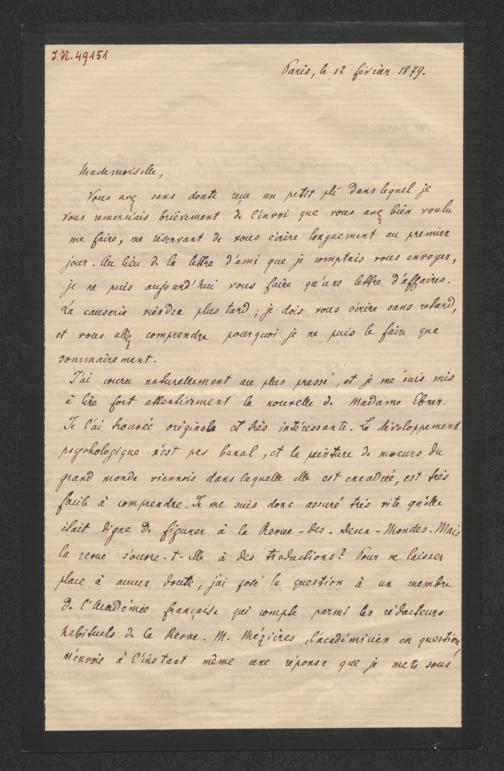 I.N. 49151
Paris, le 12 février 1879.
Mademoiselle,
Vous avez sans doute reçu un petit pli dans lequel je
vous remerciais brièvement de l'envoi que vous avez bien voulu
me faire, me réservant de vous écrire longuement au premier
jour. Au lieu de la lettre d'ami que je comptais vous envoyer,
je ne puis aujourd'hui vous faire qu'une lettre d'affaires.
La causerie viendra plus tard; je dois vous écrire sans retard,
et vous allez comprendre pourquoi je ne puis le faire que
sommairement.
J'ai couru naturellement au plus pressé, et je me suis mis
à lire fort attentivement la nouvelle de Madame Ebner.
Je l'ai trouvée originale et très intéressante. Le développement
psychologique n'est pas banal, et la peinture de mœurs du
grand monde viennois dans laquelle elle est encadrée, est très
facile à comprendre. Je me suis donc assuré très vite qu'elle
était digne de figurer à la Revue-des-Deux-Mondes. Mais
la revue s'ouvre-t-elle à des traductions? Pour ne laisser
place à aucun doute, j'ai posé la question à un membre
de l'Académie française qui compte parmi les rédacteurs
habituels de la Revue. M. Mézières, l'académicien en question,
m'envoie à l'instant même une réponse que je mets sous